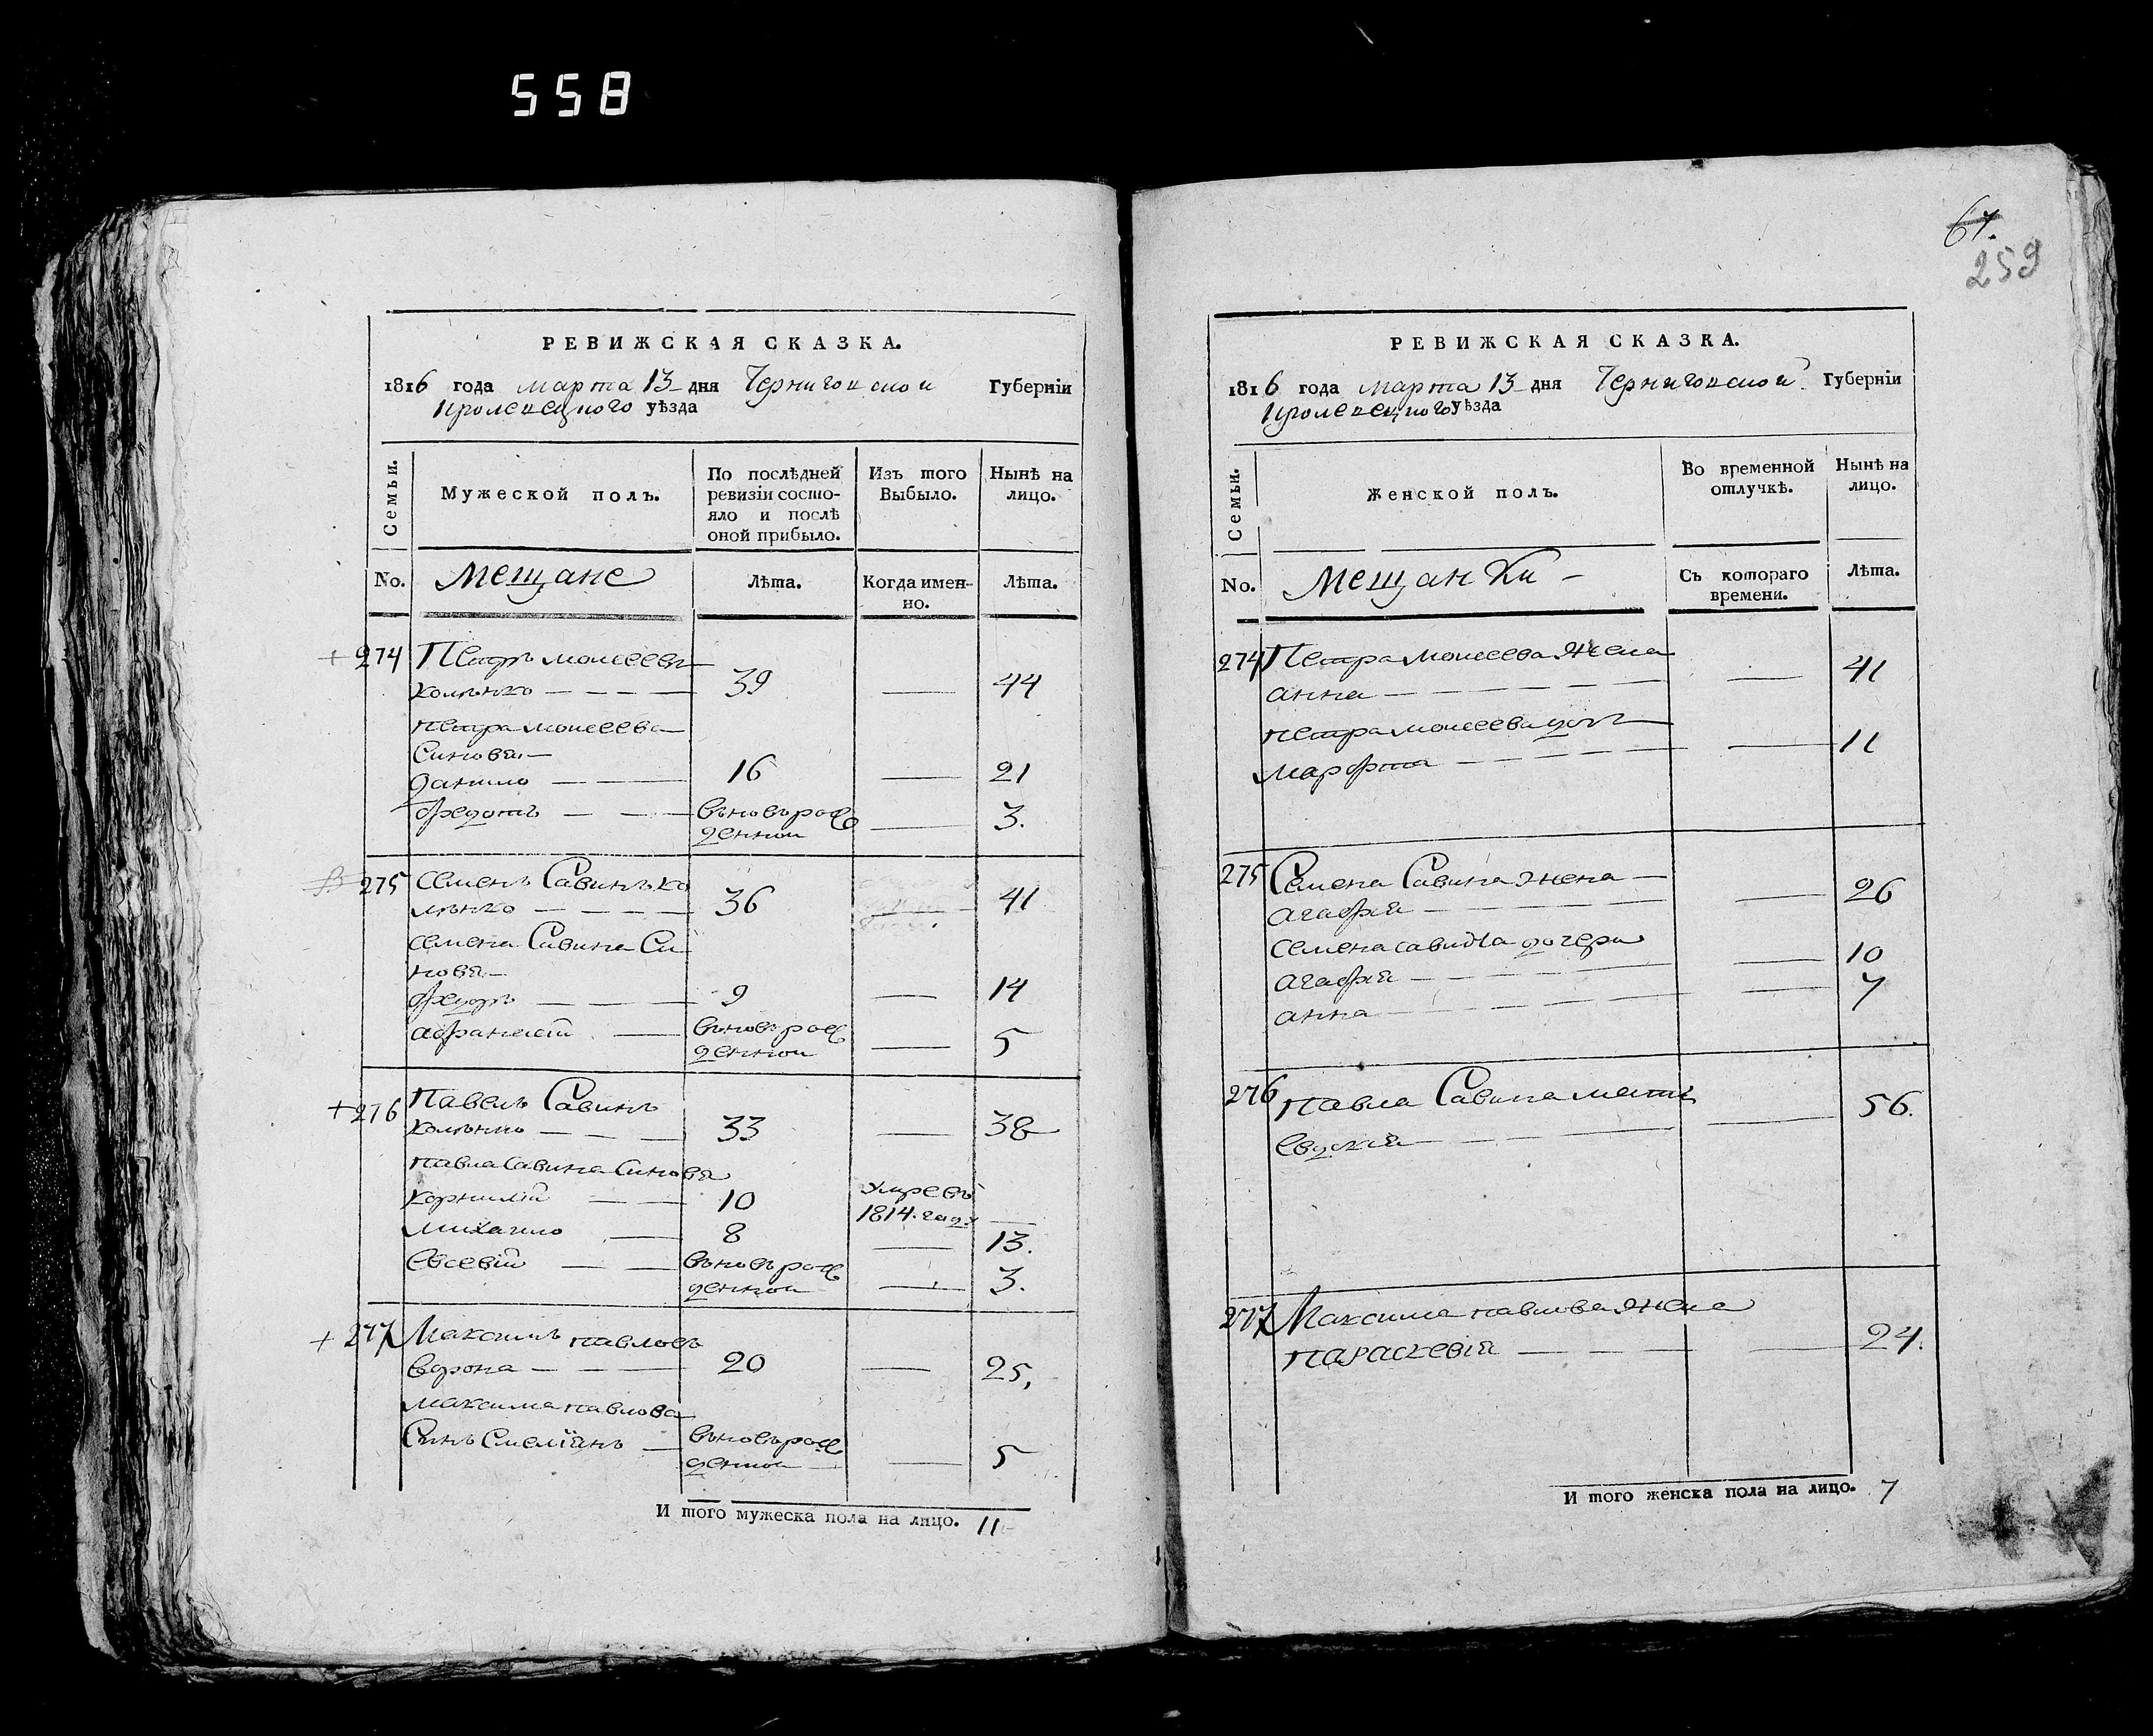 558
РЕВИЖСКАЯ СКАЗКА.
1816 года марта 13 дня Черниговской Губерніи
Кролевецкого уѣзда
Семьи.
Мужеской полъ.
По послѣдней
ревизіи состо-
яло и послѣ
оной прибыло.
Изъ того
Выбыло.
Нынѣ на
лицо.
No. Мещане Лѣта. Когда имен-
но. Лѣта.
274 Петръ моисеевъ
колѣнко 39 44
петра моисеева
Синовя
данило 16 21
федотъ въновърож
денной 3.
275 семенъ Савинъ ко
лѣнко 36 41
семена Савина Си
новя
федоръ 9 14
афанасій въновърож
денной 5
276 павелъ Савинъ
колѣнко 33 38
павла Савина Синовя
корнилій 10 Умре въ
1814. году
михаило 8 13.
Евсевій въновърож
денной 3.
277 Максимъ павловъ
ворона 20 25,
максима павлова
Синъ Емеліянъ въновърож
денной 5
И того мужеска пола на лицо. 11
67.
259
РЕВИЖСКАЯ СКАЗКА.
1816 года марта 13 дня Черниговской Губерніи
Кролевецкого уѣзда
Семьи.
Женской полъ.
Во временной
отлучкѣ.
Нынѣ на
лицо.
No. Мещанки Съ котораго
времени. Лѣта.
274 Петра моисеева жена
анна 41
петра моисеева дочь
марфа 11
275 Семена Савина жена
агафія 26
семена савина дочери
агафія 10
анна 7
276 павла Савина мать
Евдокія 56.
277 Максима павлова жена
параскевія 24.
И того женска пола на лицо. 7